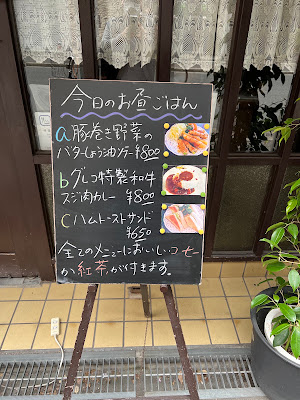 今日のお昼ごはん
a 豚巻き野菜の
バターしょう油ソテー ¥800
b グレコ特製和牛
スジ肉カレー ¥800
c ハムトーストサンド
¥650
全てのメニューにおいしいコーヒー
か紅茶が付きます。